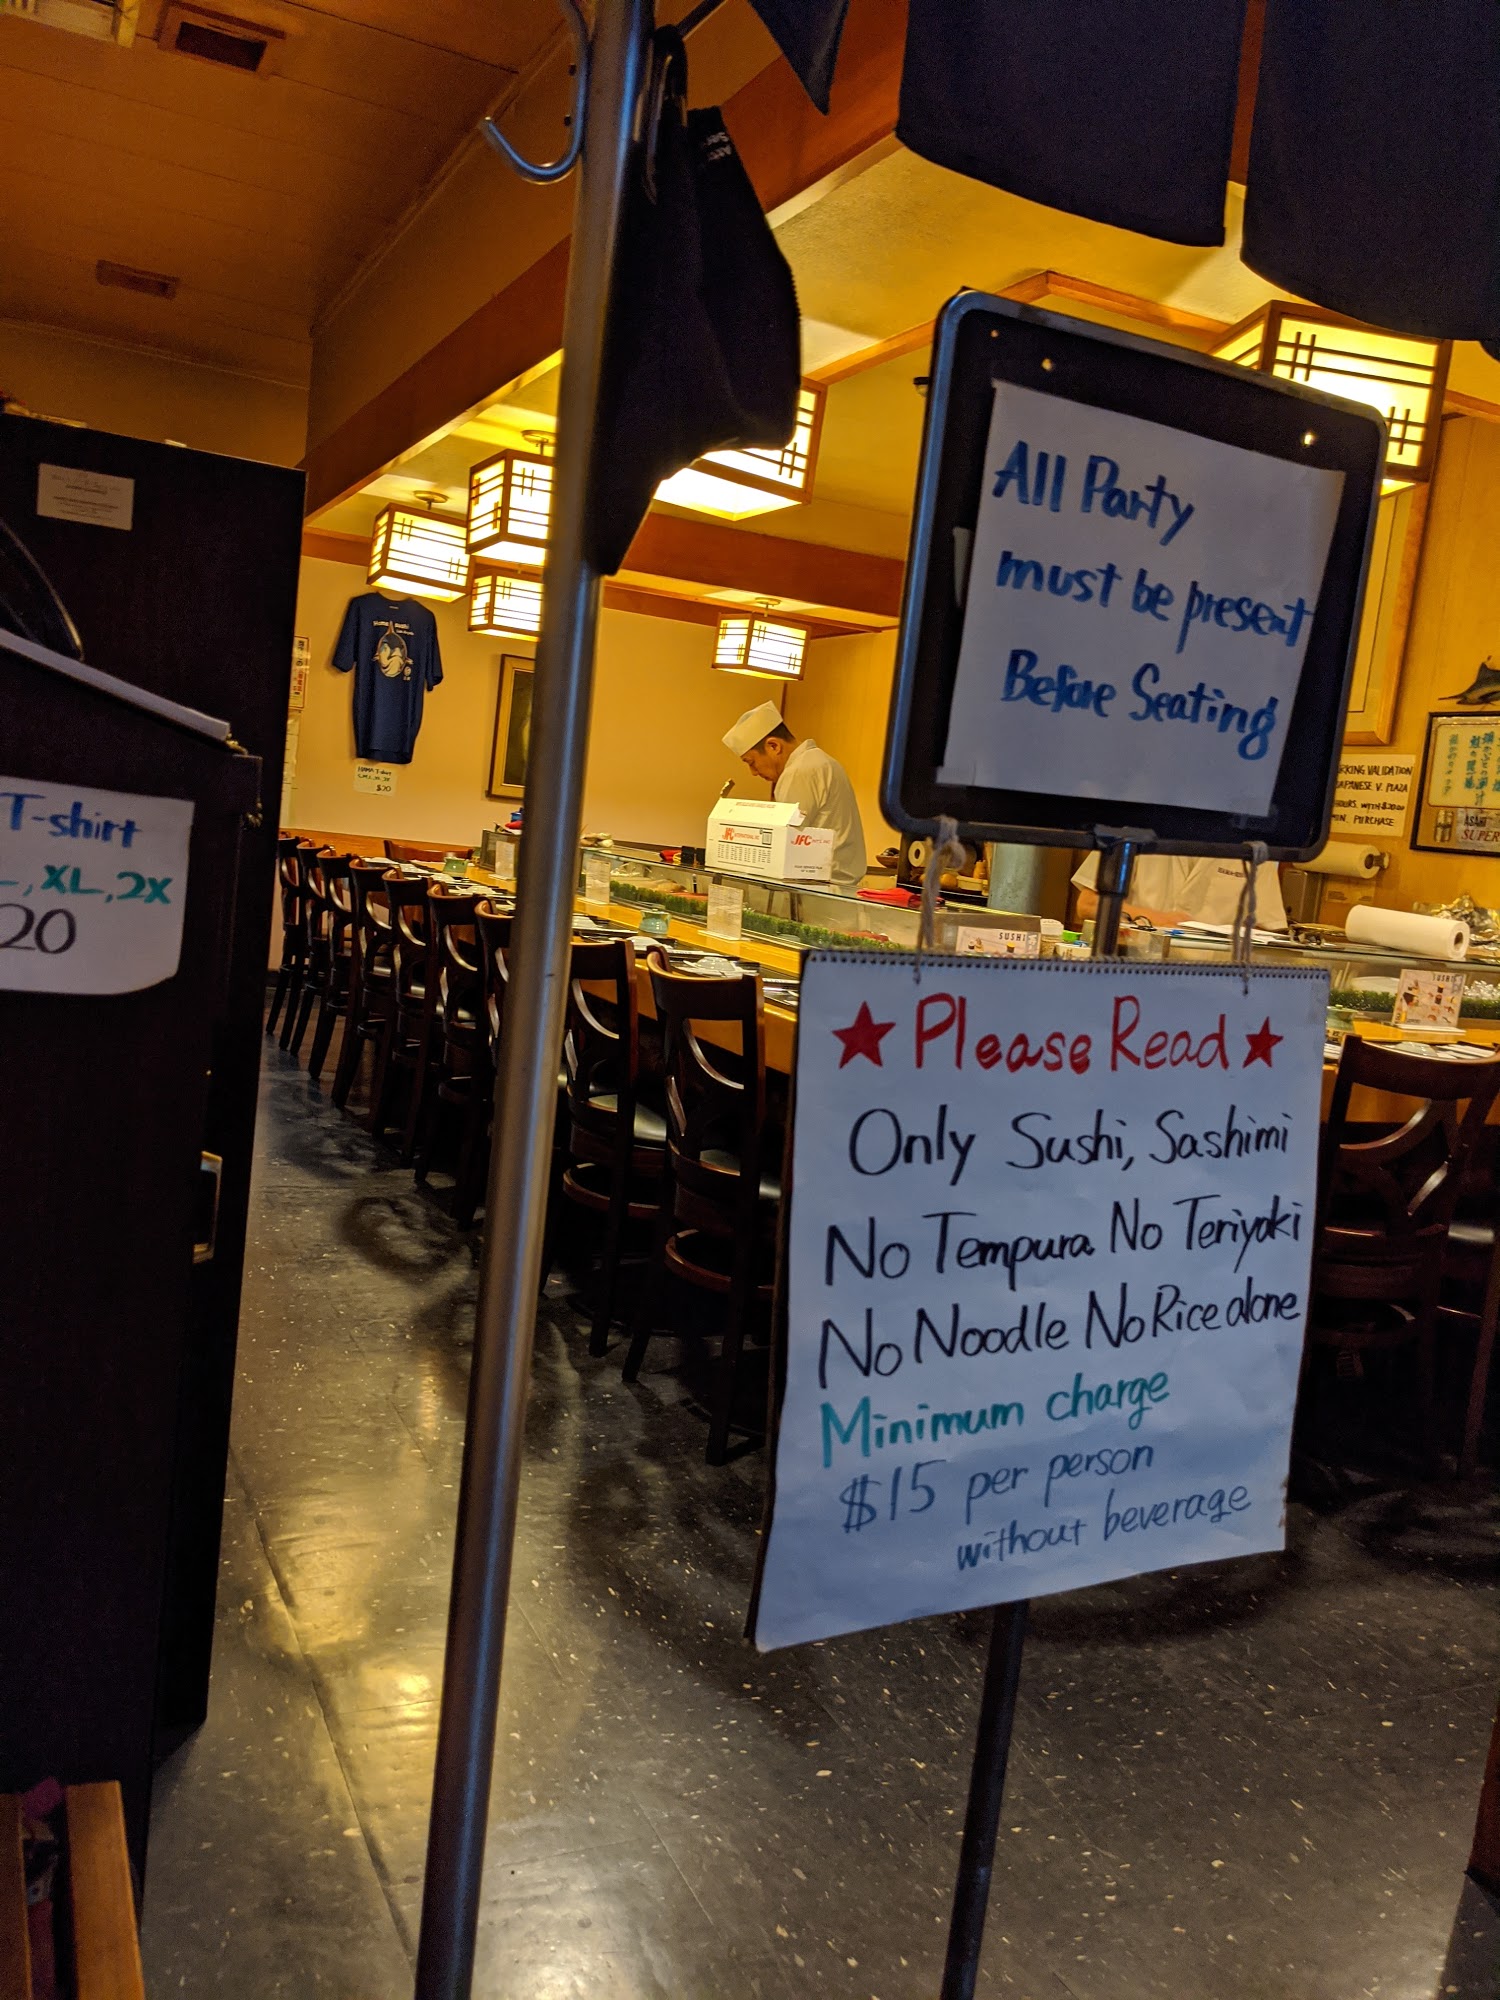 All Party
must be present
Before Seating
★ Please Read ★
Only Sushi, Sashimi
No Tempura No Teriyaki
No Noodle No Rice alone
Minimum charge
$15 per person
without beverage
T-shirt
L, XL, 2X
20
Hama sushi
HAMA T-shirt
$20
JFC
JFC
SUSHI
SUSHI
RKING VALIDATION
JAPANESE V. PLAZA
HOURS. WITH $20.00
MIN. PURCHASE
ASAHI
SUPER